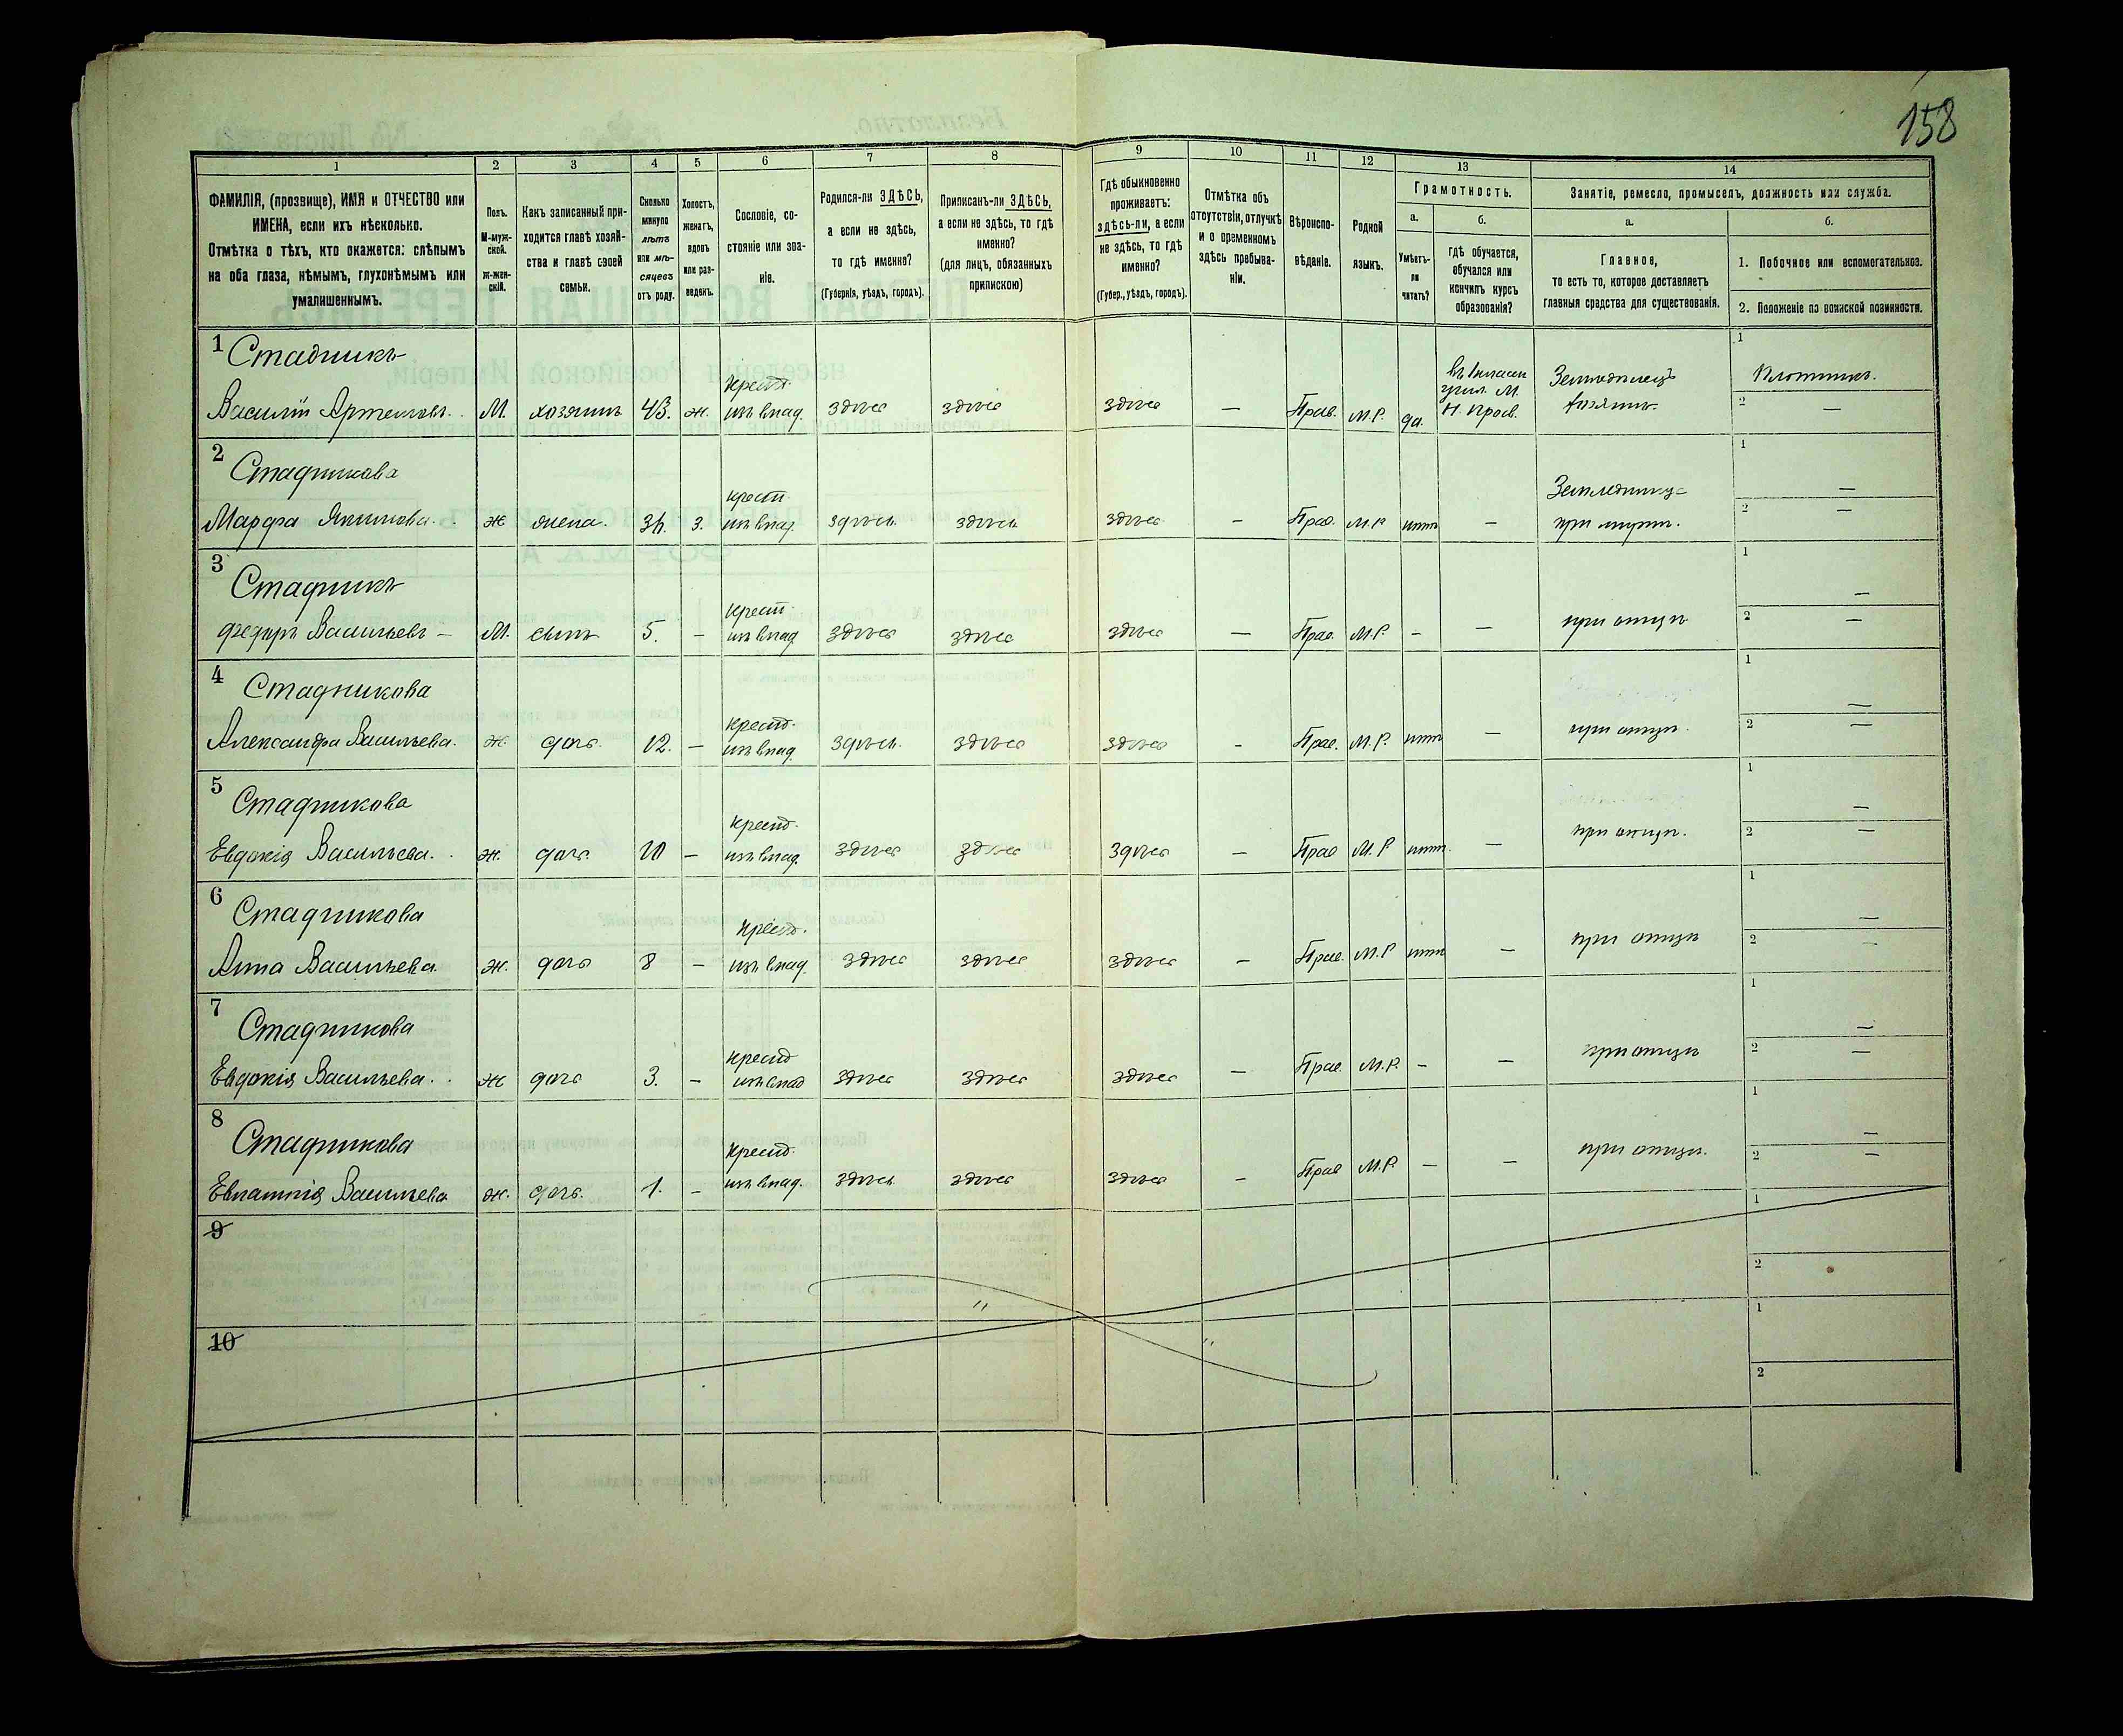 158
1 2 3 4 5 6 7 8 9 10 11 12 13 14
ФАМИЛІЯ, (прозвище), ИМЯ и ОТЧЕСТВО или
ИМЕНА, если ихъ нѣсколько.
Отмѣтка о тѣхъ, кто окажется: слѣпымъ
на оба глаза, нѣмымъ, глухонѣмымъ или
умалишеннымъ.
Полъ.
М-муж-
ской.
ж-жен-
скій.
Какъ записанный при-
ходится главѣ хозяй-
ства и главѣ своей
семьи.
Сколько
минуло
лѣтъ
или мѣ-
сяцевъ
отъ роду.
Холостъ,
женатъ,
вдовъ
или раз-
веденъ.
Сословіе, со-
стояніе или зва-
ніе.
Родился-ли ЗДѢСЬ,
а если не здѣсь,
то гдѣ именно?
(Губернія, уѣздъ, городъ).
Приписанъ-ли ЗДѢСЬ,
а если не здѣсь, то гдѣ
именно?
(для лицъ, обязанныхъ
припискою)
Гдѣ обыкновенно
проживаетъ:
здѣсь-ли, а если
не здѣсь, то гдѣ
именно?
(Губер., уѣздъ, городъ).
Отмѣтка объ
отсутствіи, отлучкѣ
и о временномъ
здѣсь пребыва-
ніи.
Вѣроиспо-
вѣданіе.
Родной
языкъ.
Грамотность.
а.
Умѣетъ-
ли
читать?
б.
Гдѣ обучается,
обучался или
кончилъ курсъ
образованія?
Занятіе, ремесло, промыселъ, должность или служба.
а.
Главное,
то есть то, которое доставляетъ
главныя средства для существованія.
б.
1. Побочное или вспомогательное.
2. Положеніе по воинской повинности.
1 Стадникъ
Василій Артемовъ. М. хозяинъ 43. ж. крест. изъ влад. здѣсь здѣсь здѣсь — Прав. М.Р. да. Н. Просв. Земледѣлецъ хозяинъ. 1 Плотникъ. 2 —
2 Стадникова
Марфа Якимова. ж жена. 34. з. крест. изъ влад. здѣсь здѣсь здѣсь — Прав. М.Р нѣтъ — при мужѣ. 1 — 2 —
3 Стадникъ
Федоръ Васильевъ — М. сынъ 5. — крест. изъ влад. здѣсь здѣсь здѣсь — Прав. М.Р. — — при отцѣ 1 — 2 —
4 Стадникова
Александра Васильева. ж. дочь. 12. — крест. изъ влад. здѣсь. здѣсь здѣсь — Прав. М.Р. нѣтъ — при отцѣ. 1 — 2 —
5 Стадникова
Евдокія Васильева. ж. дочь. 10 — крест. изъ влад. здѣсь здѣсь здѣсь — Прав М.Р. нѣтъ. — при отцѣ. 1 — 2 —
6 Стадникова
Анна Васильева. ж. дочь 8 — крест. изъ влад. здѣсь здѣсь здѣсь — Прав. М.Р нѣтъ — при отцѣ 1 — 2 —
7 Стадникова
Евдокія Васильева. ж дочь 3. — крест изъ влад здѣсь здѣсь здѣсь — Прав. М.Р. — — при отцѣ 1 — 2 —
8 Стадникова
Васильева ж. дочь. 1. — крест. изъ влад. здѣсь здѣсь здѣсь — Прав М.Р. — — при отцѣ. 1 — 2 —
9 1 2
10 1 2